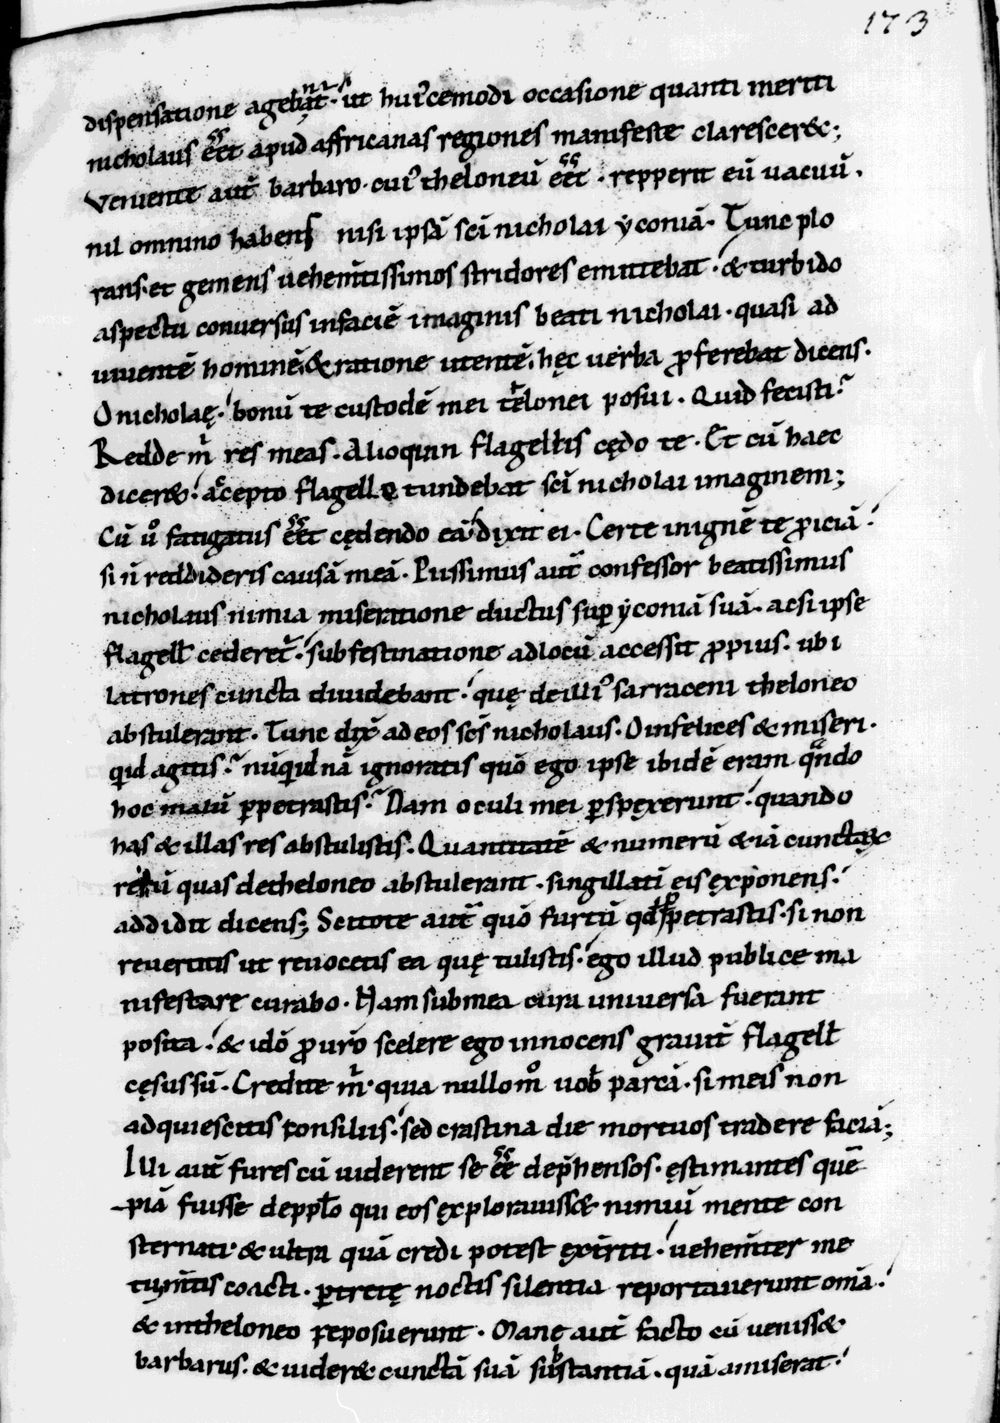 173
dispensatione agebat̄ · ut hui᾽cemodi occasione quanti meriti
nicholaus eēt apud affricanas regiones manifeste claresceret;
Veniente aut̄ barbaro · cui᾽ theloneū eēt · repperit eū vacuū .
nil omnino habens nisi ipsā sc̄i nicholai yconiā · Tunc plo
rans · et gemens uehem̄tissimos stridores emittebat · & turbido
aspectu conuersus infaciē imaginis beati nicholai · quasi ad
uiuentē hominē · & ratione utentē · hęc uerba ꝓferebat dicens ·
O nicholaę · bonū te custodē mei telonei posui · Quid fecisti?
Redde m̄ res meas · Alioquin flagellis cędo te · Et cū haec
diceret · accepto flagello tundebat sc̄i nicholai imaginem;
Cū ūo fatigatus eēt cędendo eā dixit ei · Certe inignē te ꝓiciā ·
si n̄ reddideris causā meā · Piissimus aut̄ confessor beatissimus
nicholaus nimia miseratione ductus suꝑ yconiā suā · acsi ipse
flagell̄ cederet̄ · subfestinatione adlocū accessit ꝓpius · ubi
latrones cuncta diuidebant · quę deilli᾽ sarraceni theloneo
abstulerant · Tunc dix̄ ad eos sc̄s nicholaus · O infelices & miseri ·
qid agitis? nūqid nā ignoratis quō ego ipse ibidē eram qando
hoc malū ꝑpetrastis? Nam oculi mei ꝑspexerunt · quando
has & illas res abstulistis · Quantitatē & numerū & iā cunctaꝝ
rerū quas detheloneo abstulerant · singillatī eis exponens ·
addidit dicens; Scitote aut̄ quō furtū qd̄ ꝑpetrastis · si non
reuertitis ut reuocetis ea quę tulistis · ego illud publice ma
nifestare curabo · Nam sub mea cura uniuersa fuerant
posita · & idō ꝓ urō scelere ego innocens grauit̄ flagell̄
cęsus sū · Credite m̄ · quia nullo mō uob̄ parcā · si meis non
adquiescitis consiliis · sed crastina die mortuos tradere faciā;
Illi aut̄ fures cū uiderent se eē dep̄hensos · ęstimantes quē
piā fuisse deppl̄o qui eos exploravisset nimiū mente con
sternati · & ultra quā credi potest exterriti · uehem̄ter me
tum̄tis coacti · ꝑtretę noctis silentia reportauerunt om̄a ·
& intheloneo reposuerunt · Mane aut̄ facto cū uenisset
barbarus · & uideret cunctā suā substantiā · quā amiserat ·